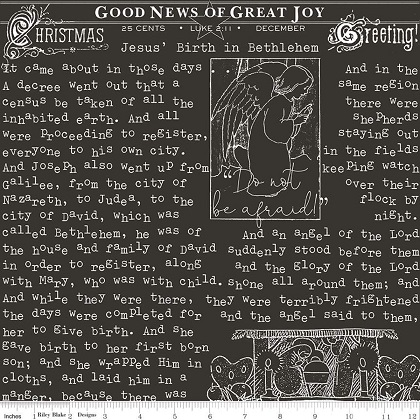 GOOD NEWS OF GREAT JOY
CHRISTMAS
25 CENTS • LUKE 2:11 • DECEMBER
Greeting!
Jesus' Birth in Bethlehem
It came about in those days
A decree went out that a
census be taken of all the
inhabited earth. And all
were Proceeding to register,
everyone to his own city.
And Joseph also went up from
Galilee, from the city of
Nazareth, to Judea, to the
city of David, which was
called Bethlehem, he was of
the house and family of David
in order to register, along
with Mary, who was with child.
And while they were there,
the days were completed for
her to give birth. And she
gave birth to her first born
son; and she wrapped Him in
cloths, and laid him in a
manger, because there was
"Do not
be afraid"
And in the
same region
there were
shepherds
staying out
in the fields
keeping watch
over their
flock by
night.
And an angel of the Lord
suddenly stood before them
and the glory of the Lord
shone all around them; and
they were terribly frightened
and the angel said to them,
Inches 1 Riley Blake 2 Designs 3 4 5 6 7 8 9 10 11 12